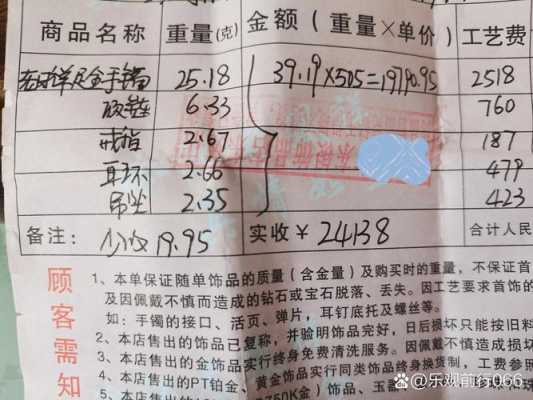 商品名称 重量(克) 金额(重量×单价) 工艺费
足金手镯 25.18 39.19×505=19790.95 2518
项链 6.33 760
戒指 2.67 187
耳环 2.66 479
吊坠 2.35 423
备注: 少收19.95 实收¥ 24138 合计人民
顾客需知
1、本单保证随单饰品的质量(含金量)及购买时的重量,不保证首
及因佩戴不慎而造成的钻石或宝石脱落、丢失。因工艺要求首饰的
如:手镯的接口、活页、弹片,耳钉底托及螺丝等。
2、本店售出的饰品已复称,并验明饰品完好,日后损坏只能按旧料
3、本店售出的金饰品实行终身免费清洗服务。因佩戴不慎造成损坏
4、本店售出的PT铂金、黄金饰品实行同类饰品终身换货制,工费参照
金)饰品、玉
@乐观前行066